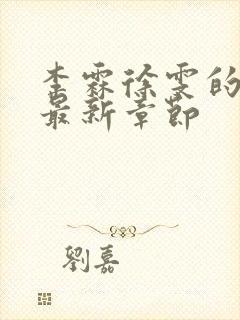 李霖徐雯的
最新章節
劉嘉